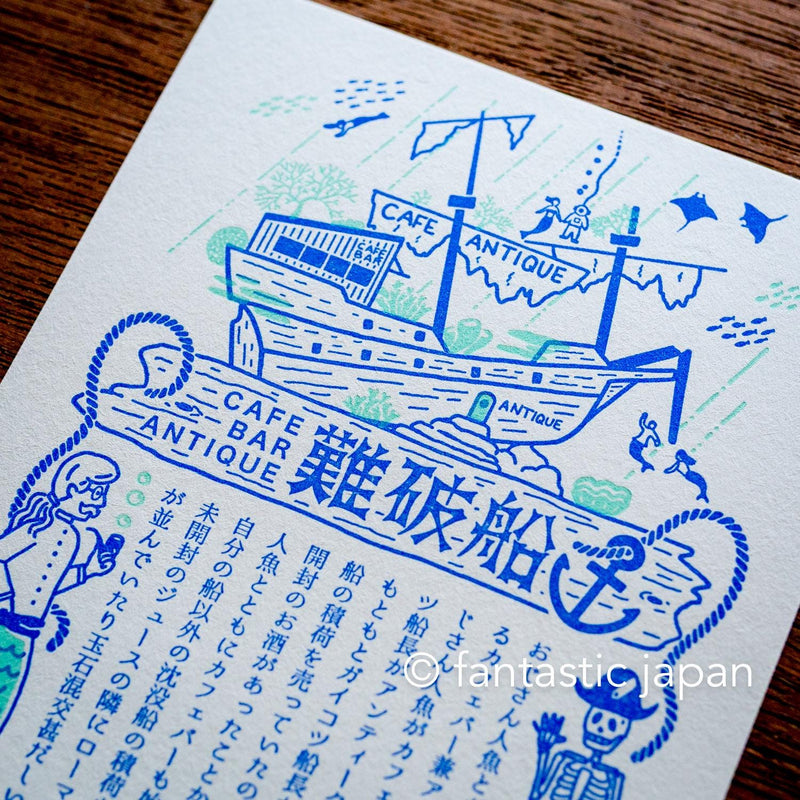 CAFE BAR
CAFE ANTIQUE
ANTIQUE
CAFE
BAR
ANTIQUE
難破船
おじさん人魚と
るカフェバー兼ア
じさん人魚がカフェ
ツ船長がアンティーク
もともとガイコツ船長
船の積荷を売っていたの
開封のお酒があったことか
人魚とともにカフェバーも
自分の船以外の沈没船の積荷
未開封のジュースの隣にローマ
が並んでいたり玉石混交甚だしい
© fantastic japan